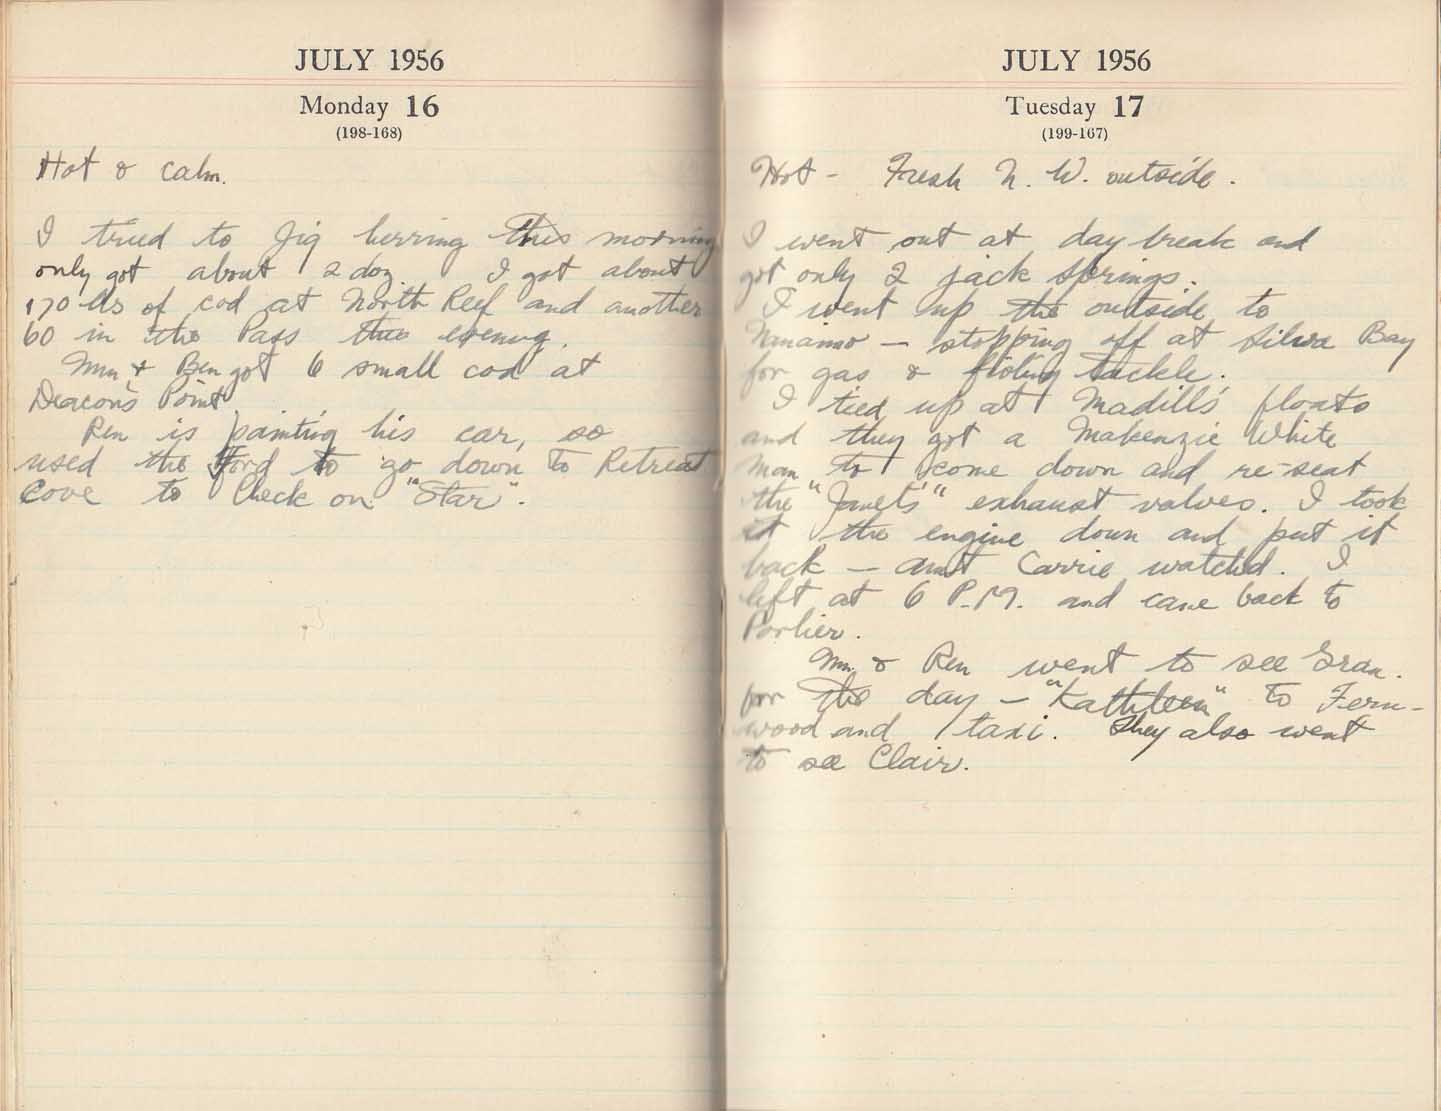 JULY 1956
Monday 16
(198-168)
Hot & calm.
I tried to jig herring this morning
only got about 2 doz I got about
170 lbs of cod at North Reef and another
60 in the Pass this evening.
Mm & Ben got 6 small cod at
Deacon's Point
Ren is painting his car, so
used the Ford to go down to Retreat
Cove to Check on "Star".
JULY 1956
Tuesday 17
(199-167)
Hot - Fresh N. W. outside.
I went out at day break and
got only 2 jack springs.
I went up the outside to
Nanaimo - stopping off at Silva Bay
for gas & fishing tackle.
I tied up at Madill's floats
and they got a Makenzie White
man to come down and re-seat
the "Janet's" exhaust valves. I took
the engine down and put it
back - aunt Carrie watched. I
left at 6 P.M. and came back to
Porlier.
Mm. & Ren went to see Gran.
for the day - "Kathleen" to Fern-
wood and taxi. They also went
to see Clair.